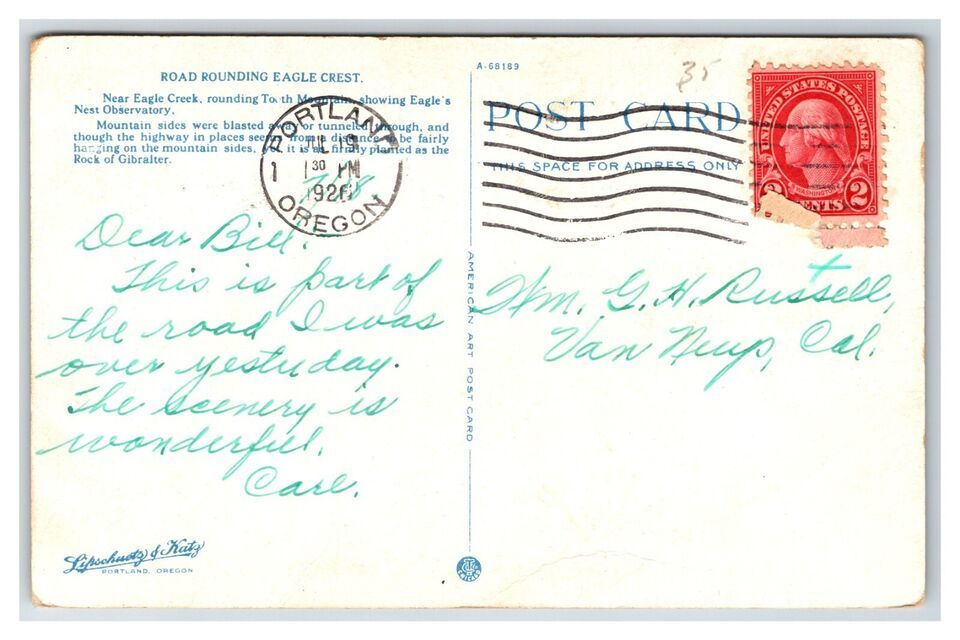 ROAD ROUNDING EAGLE CREST.
Near Eagle Creek, rounding Tooth Mountain, showing Eagle's
Nest Observatory.
Mountain sides were blasted away or tunneled through, and
though the highway in places seems from a distance to be fairly
hanging on the mountain sides, yet it is as firmly planted as the
Rock of Gibralter.
PORTLAND
JUL 19
1 30 PM
1926
OREGON
Dear Bill.
This is part of
the road I was
over yesterday.
The scenery is
wonderful.
Carl.
Lipschuetz & Katz
PORTLAND, OREGON
AMERICAN ART POST CARD
A-68189
35
POST CARD
THIS SPACE FOR ADDRESS ONLY
UNITED STATES POSTAGE
WASHINGTON
2 CENTS 2
Wm. G. H. Russell,
Van Nuys, Cal.